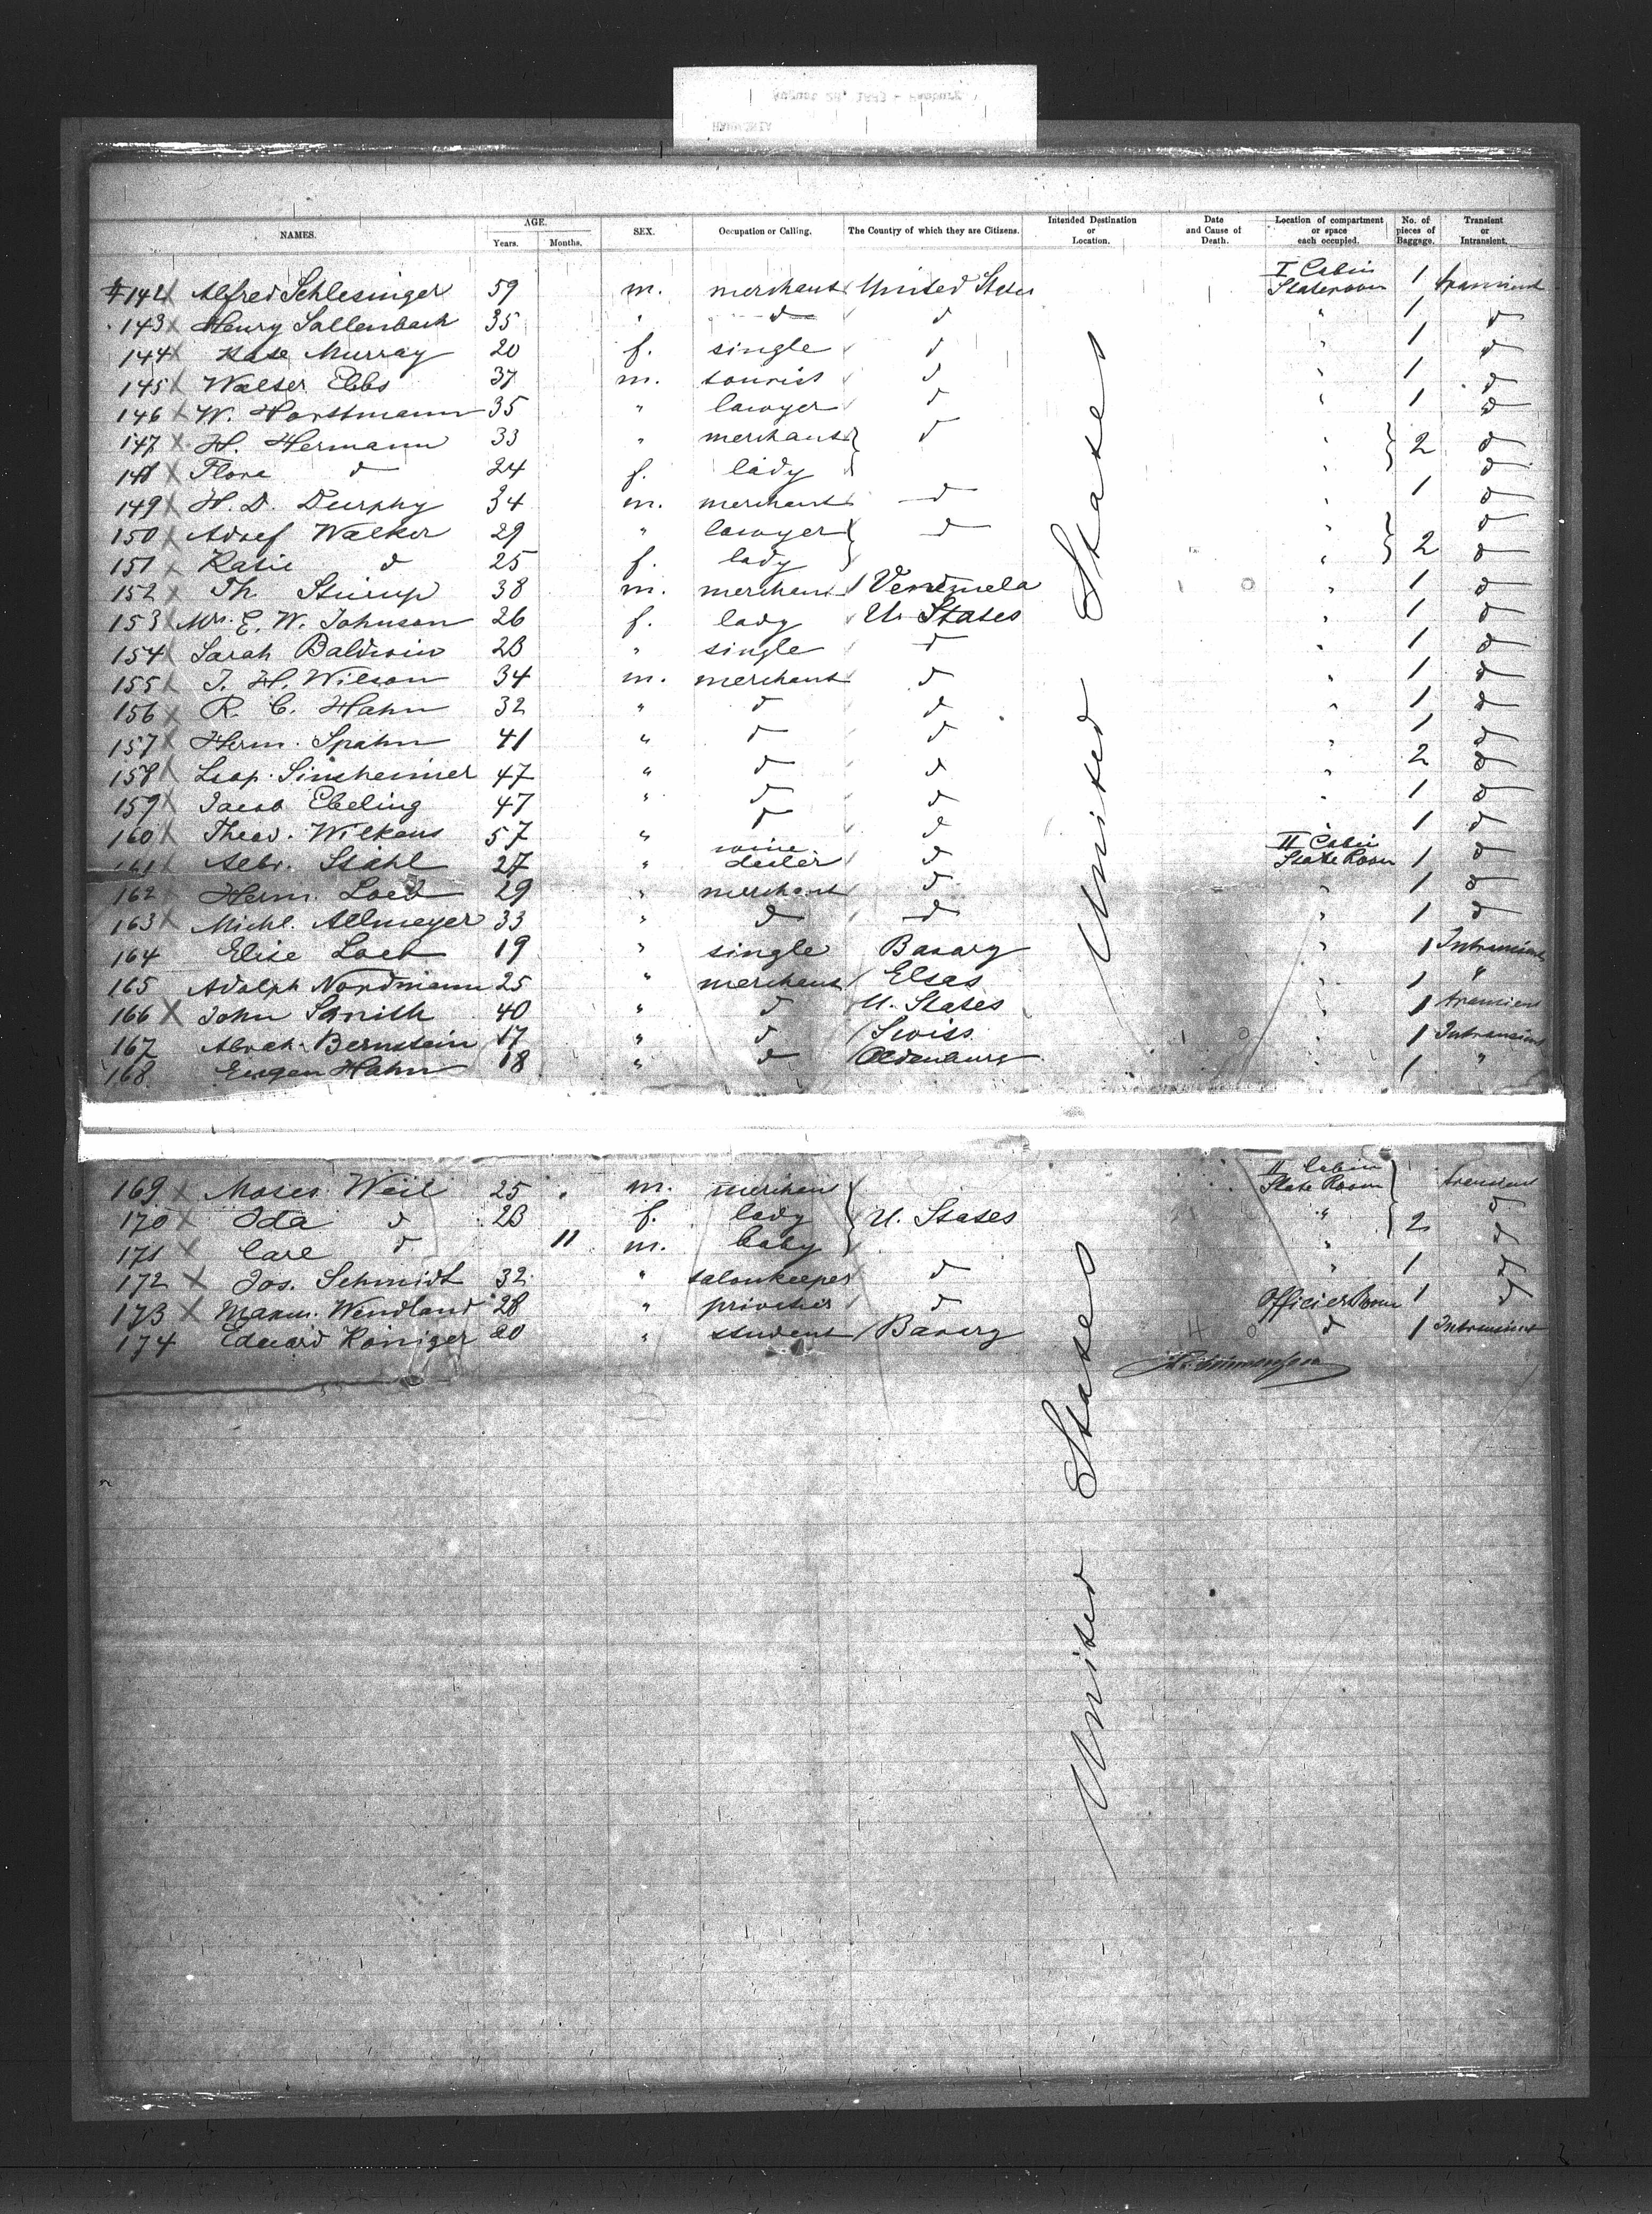 HAMMONIA
August 24, 1883 - Hamburg
NAMES. AGE. Years. Months. SEX. Occupation or Calling. The Country of which they are Citizens. Intended Destination or Location. Date and Cause of Death. Location of compartment or space each occupied. No. of pieces of Baggage. Transient or Intransient.
#142 X Alfred Schlesinger 59 m. merchant United States I Cabin Stateroom 1 transient
143 X Henry Sallenbach 35 " d d " 1 d
144 X Kate Murray 20 f. single d " 1 d
145 X Walter Ebbs 37 m. tourist d " 1 d
146 X W. Horstmann 35 " lawyer d " 1 d
147 X H. Hermann 33 " merchant d " 2 d
148 X Flora d 24 f. lady " d
149 X H. D. Durphy 34 m. merchant d " 1 d
150 X Adolf Walker 29 " lawyer d " 2 d
151 X Katie d 25 f. lady " d
152 X Th. Stürup 38 m. merchant Venezuela " 1 d
153 X Mrs. E. W. Johnson 26 f. lady U. States " 1 d
154 X Sarah Baldwin 23 " single d " 1 d
155 X J. H. Wilson 34 m. merchant d " 1 d
156 X R. C. Hahn 32 " d d " 1 d
157 X Herm. Spahn 41 " d d " 1 d
158 X Leop. Sinsheimer 47 " d d " 2 d
159 X Jacob Ebeling 47 " d d " 1 d
160 X Theod. Wilkens 57 " d d " 1 d
161 X Aebr. Stahl 27 " wine dealer d II Cabin State Room 1 d
162 X Herm. Loeb 29 " merchant d " 1 d
163 X Michl. Allmeyer 33 " d d " 1 d
164 Elise Loeb 19 " single Bavarg " 1 Intransient
165 Adolph Nordmann 25 " merchant Elsas " 1 "
166 X John Smith 40 " d U. States " 1 transient
167 Abrah. Bernstein 17 " d Swiss " 1 Intransient
168 Eugen Hahn 18 " d Oldenburg " 1 "
United States
169 X Moses Weil 25 m. merchant II Cabin State Room transient
170 X Ida d 23 f. lady U. States " 2 d
171 X Carl d 11 m. baby " d
172 X Jos. Schmidt 32 " salonkeeper d " 1 d
173 X Wendland 28 " privatier d Officier Room 1 d
174 Eduard Königer 20 " student Bavarg d 1 Intransient
United States